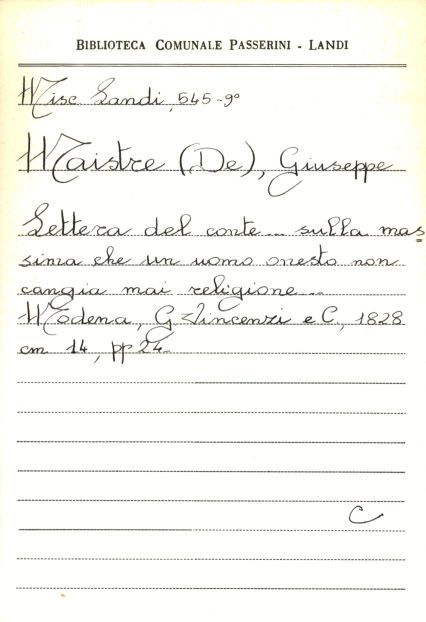 BIBLIOTECA COMUNALE PASSERINI - LANDI
Misc. Landi, 545-9°
Maistre (De), Giuseppe
Lettera del conte... sulla mas
sima che un uomo onesto non
cangia mai religione...
Modena, G. Vincenzi e C., 1828
cm 14, pp 24.
C